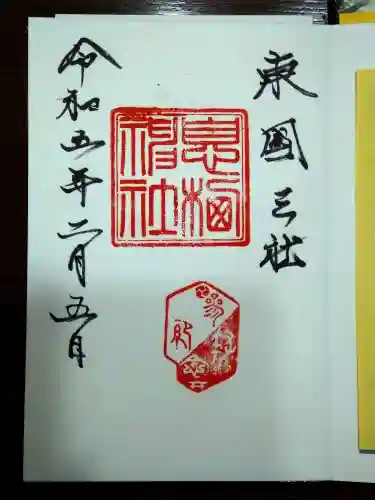 東國三社
息栖神社
令和五年二月五日